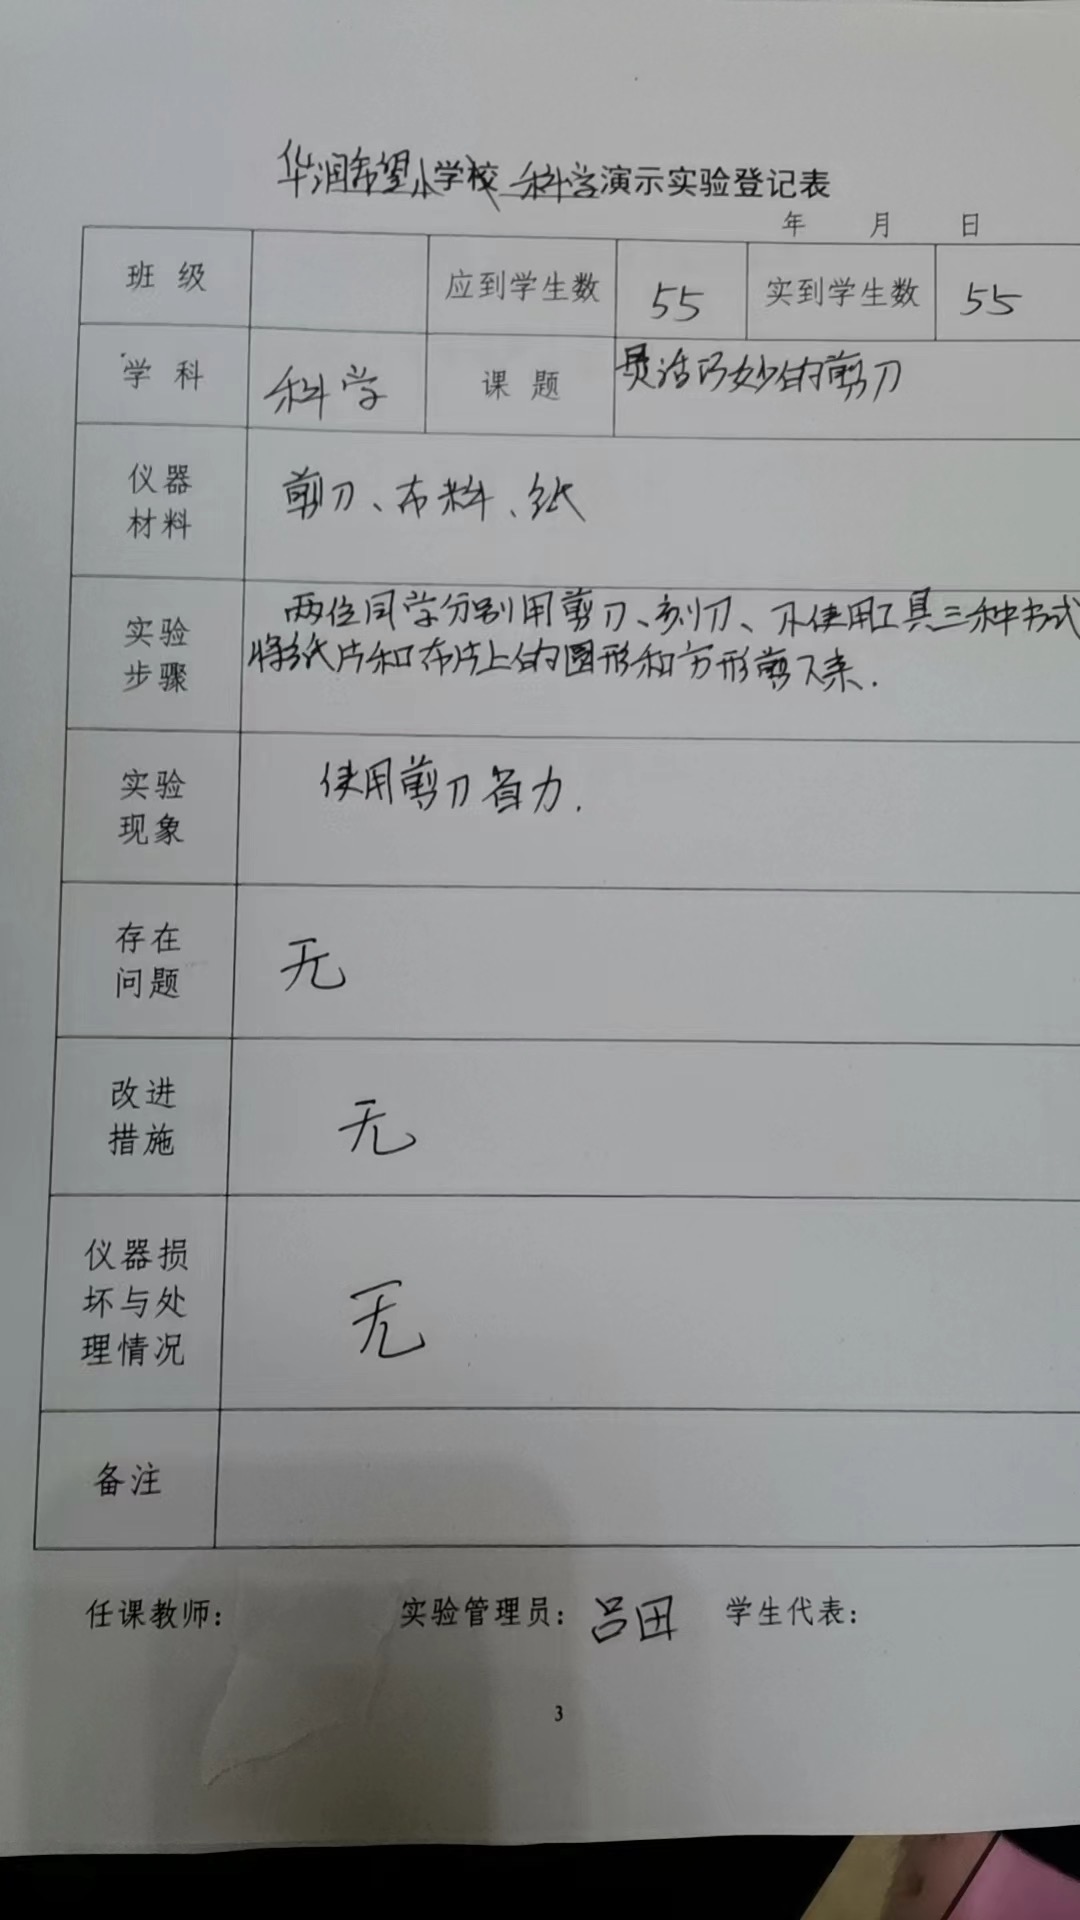 华润希望小学校科学演示实验登记表
年 月 日
班级 应到学生数 55 实到学生数 55
学科 科学 课题 灵活巧妙的剪刀
仪器
材料
剪刀、布料、纸
实验
步骤
两位同学分别用剪刀、刻刀、不使用工具三种方式
将纸片和布片上的圆形和方形剪下来.
实验
现象
使用剪刀省力.
存在
问题
无
改进
措施
无
仪器损
坏与处
理情况
无
备注
任课教师: 实验管理员: 吕田 学生代表:
3